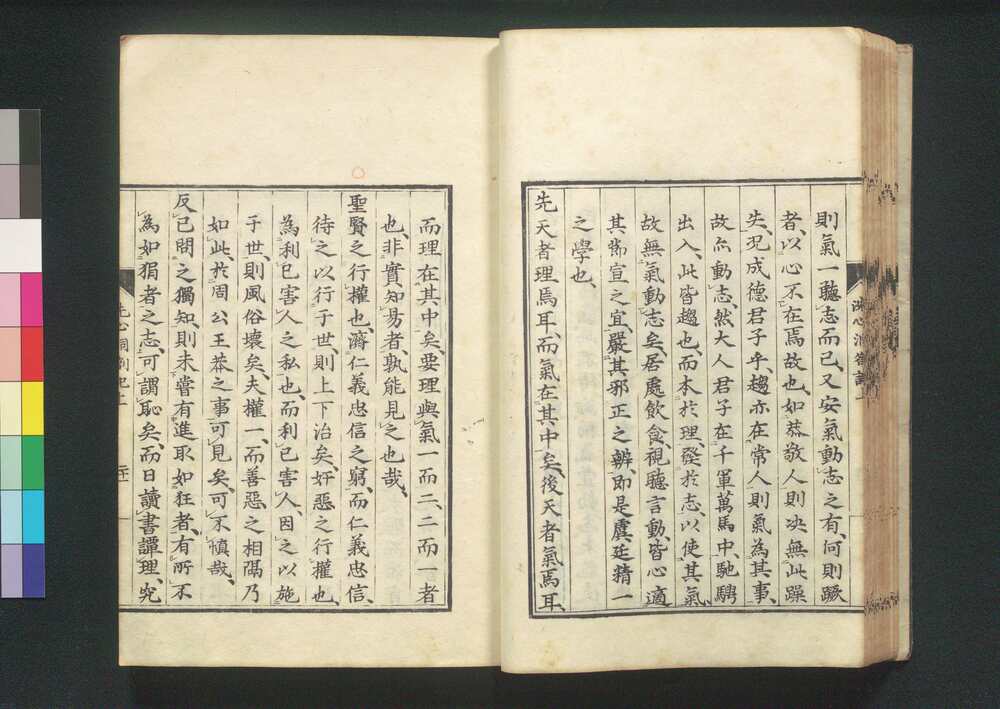 則氣一聽志而已、又安氣動志之有、何則蹶
者、以心不在焉故也、如恭敬人則決無此躁
失、况成德君子乎、趨亦在常人則氣爲其事、
故亦動志、然大人君子在千軍萬馬中、馳騁
出入、此皆趨也、而本於理、發於志、以使其氣、
故無氣動志矣、居處飲食、視聽言動、皆心適
其節宣之宜、嚴其邪正之辨、即是虞廷精一
之學也、
先天者理焉耳、而氣在其中矣、後天者氣焉耳、
而理在其中矣、要理與氣一而二、二而一者
也、非實知易者、孰能見之也哉、
聖賢之行權也、濟仁義忠信之窮、而仁義忠信、
待之以行于世則上下治矣、奸惡之行權也、
爲利己害人之私也、而利己害人、因之以施
于世、則風俗壞矣、夫權一、而善惡之相隔乃
如此、於周公王莽之事可見矣、可不愼哉、
反己問之獨知、則未嘗有進取如狂者、有所不
爲如狷者之志、可謂恥矣、而日讀書譚理、究
洗心洞劄記上